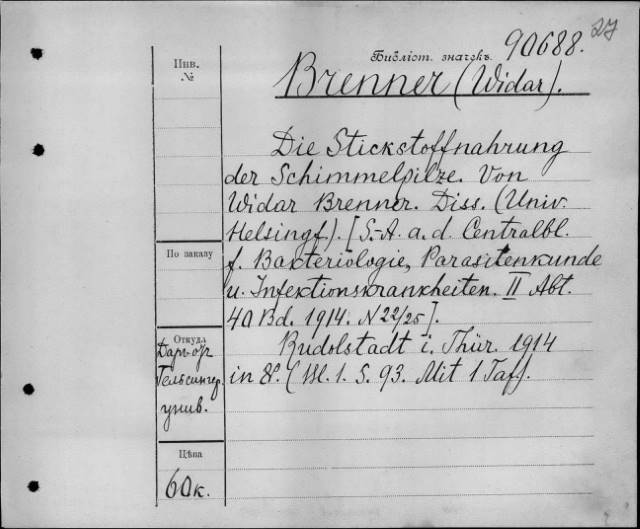 27
Библіот. значекъ 90688.
Инв.
№
Brenner (Widar).
Die Stickstoffnahrung
der Schimmelpilze. Von
Widar Brenner. Diss. (Univ.
Helsingf). [S.-A. a. d. Centralbl.
По заказу
f. Bakteriologie, Parasitenkunde
u. Infektionskrankheiten. II Abt.
40 Bd. 1914. N 22/25].
Откуда
Даръ отъ
Гельсингф.
унив.
Rudolstadt i. Thür. 1914
in 8°. (Bl. 1. S. 93. Mit 1 Taf).
Цѣна
60к.